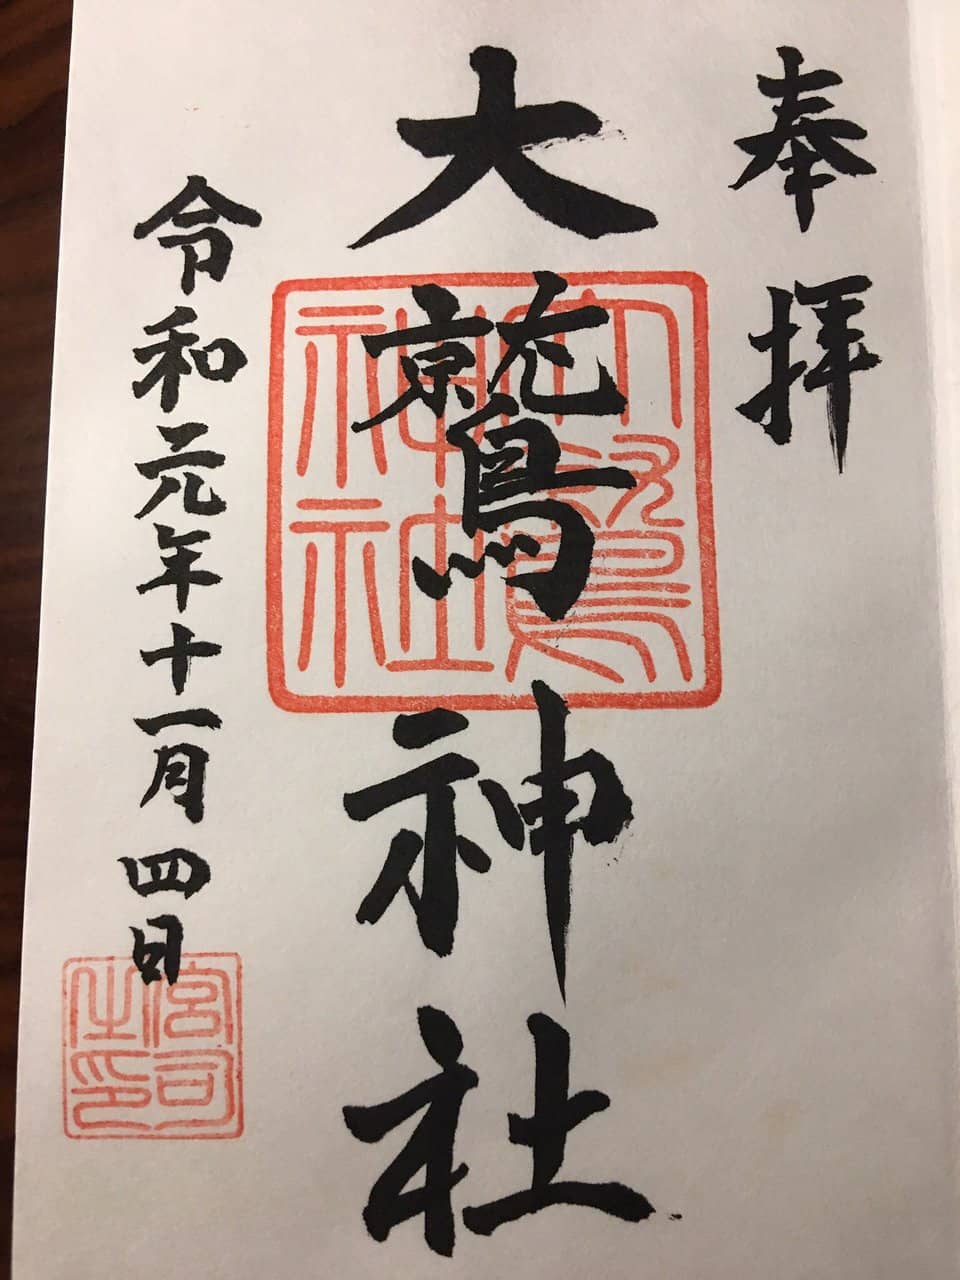 奉拝
大鷲神社
大鷲神社
令和元年十一月四日
宮司之印